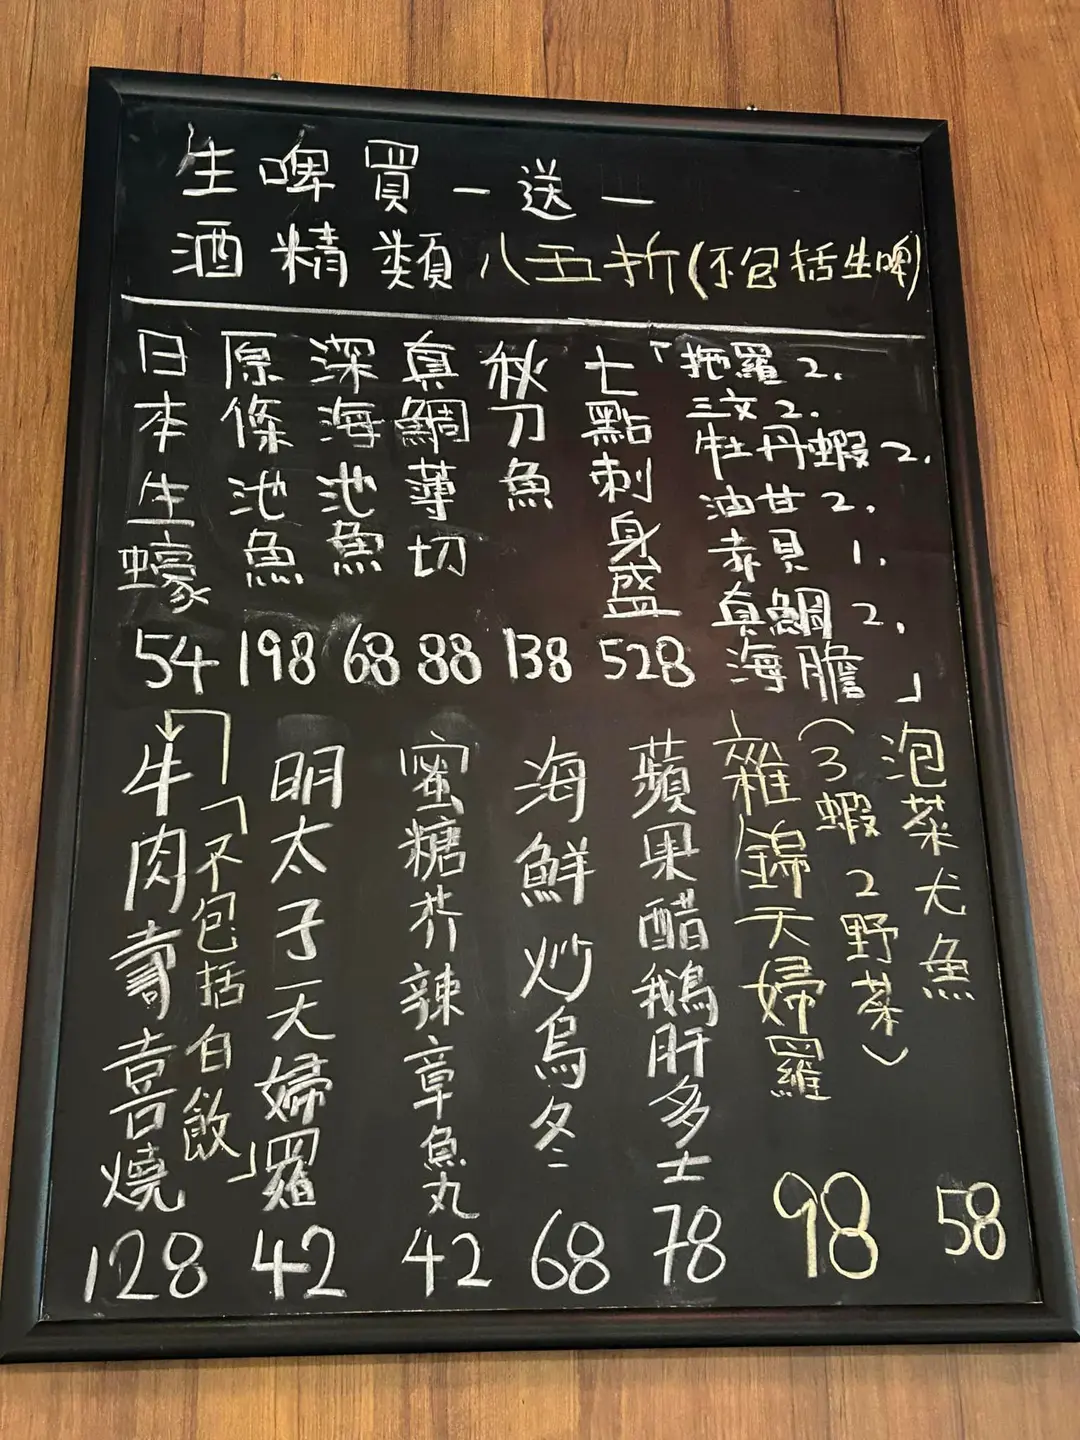 生啤買一送一
酒精類八五折(不包括生啤)
日本生蠔
54
原條池魚
198
深海池魚
68
真鯛薄切
88
秋刀魚
138
七點刺身盛
528
「拖羅 2.
三文 2.
牡丹蝦 2.
油甘 2.
赤貝 1.
真鯛 2.
海膽」
牛肉壽喜燒
「不包括白飯」
128
明太子天婦羅
42
蜜糖芥辣章魚丸
42
海鮮炒烏冬
68
蘋果醋鵝肝多士
78
雜錦天婦羅
(3蝦2野菜)
98
泡菜尤魚
58